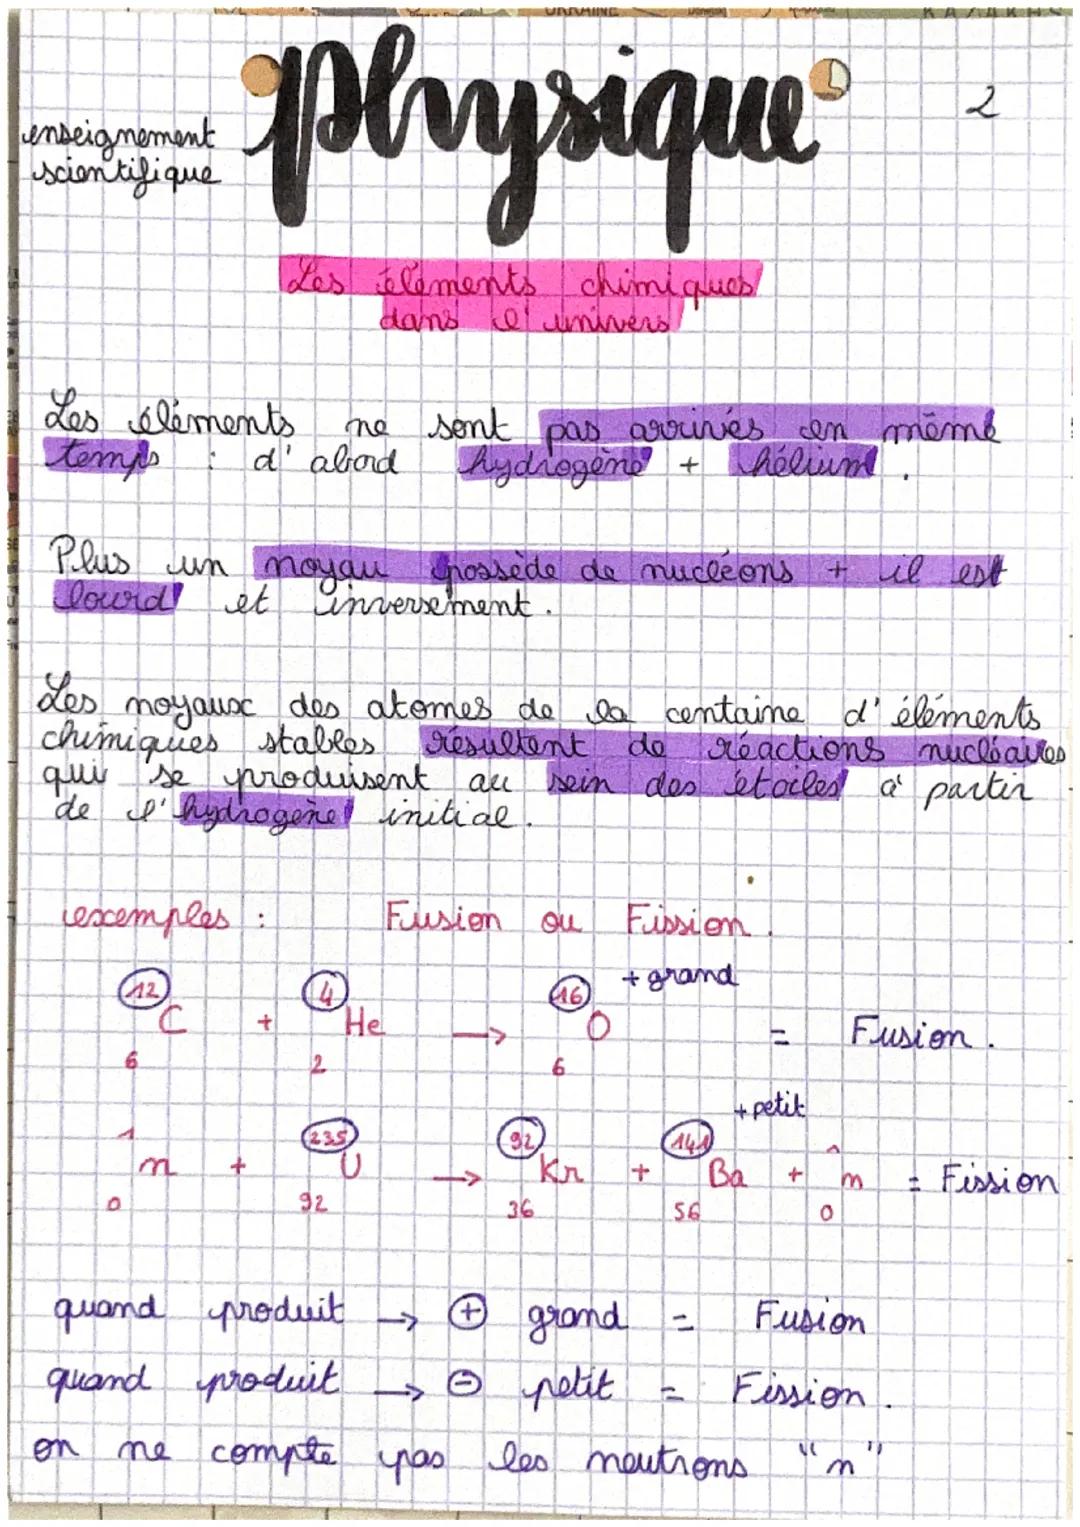 UKRAINE
physique
2
enseignement
scientifique
Les éléments chimiques
dans l'univers
Les éléments ne sont pas arrivés en même
temps : d'abord hydrogène + hélium.
Plus un noyau possède de nucléons + il est
lourd et inversement.
Les noyaux des atomes de la centaine d'éléments
chimiques stables résultent de réactions nucléaires
qui se produisent au sein des étoiles à partir
de l'hydrogène initial.
exemples : Fusion ou Fission.
12 4 16 + grand
C + He → O = Fusion.
6 2 6
+ petit
1 235 92 141 1
n + U → Kr + Ba + n = Fission
0 92 36 56 0
quand produit → + grand = Fusion
quand produit → - petit = Fission.
on ne compte pas les neutrons "n"